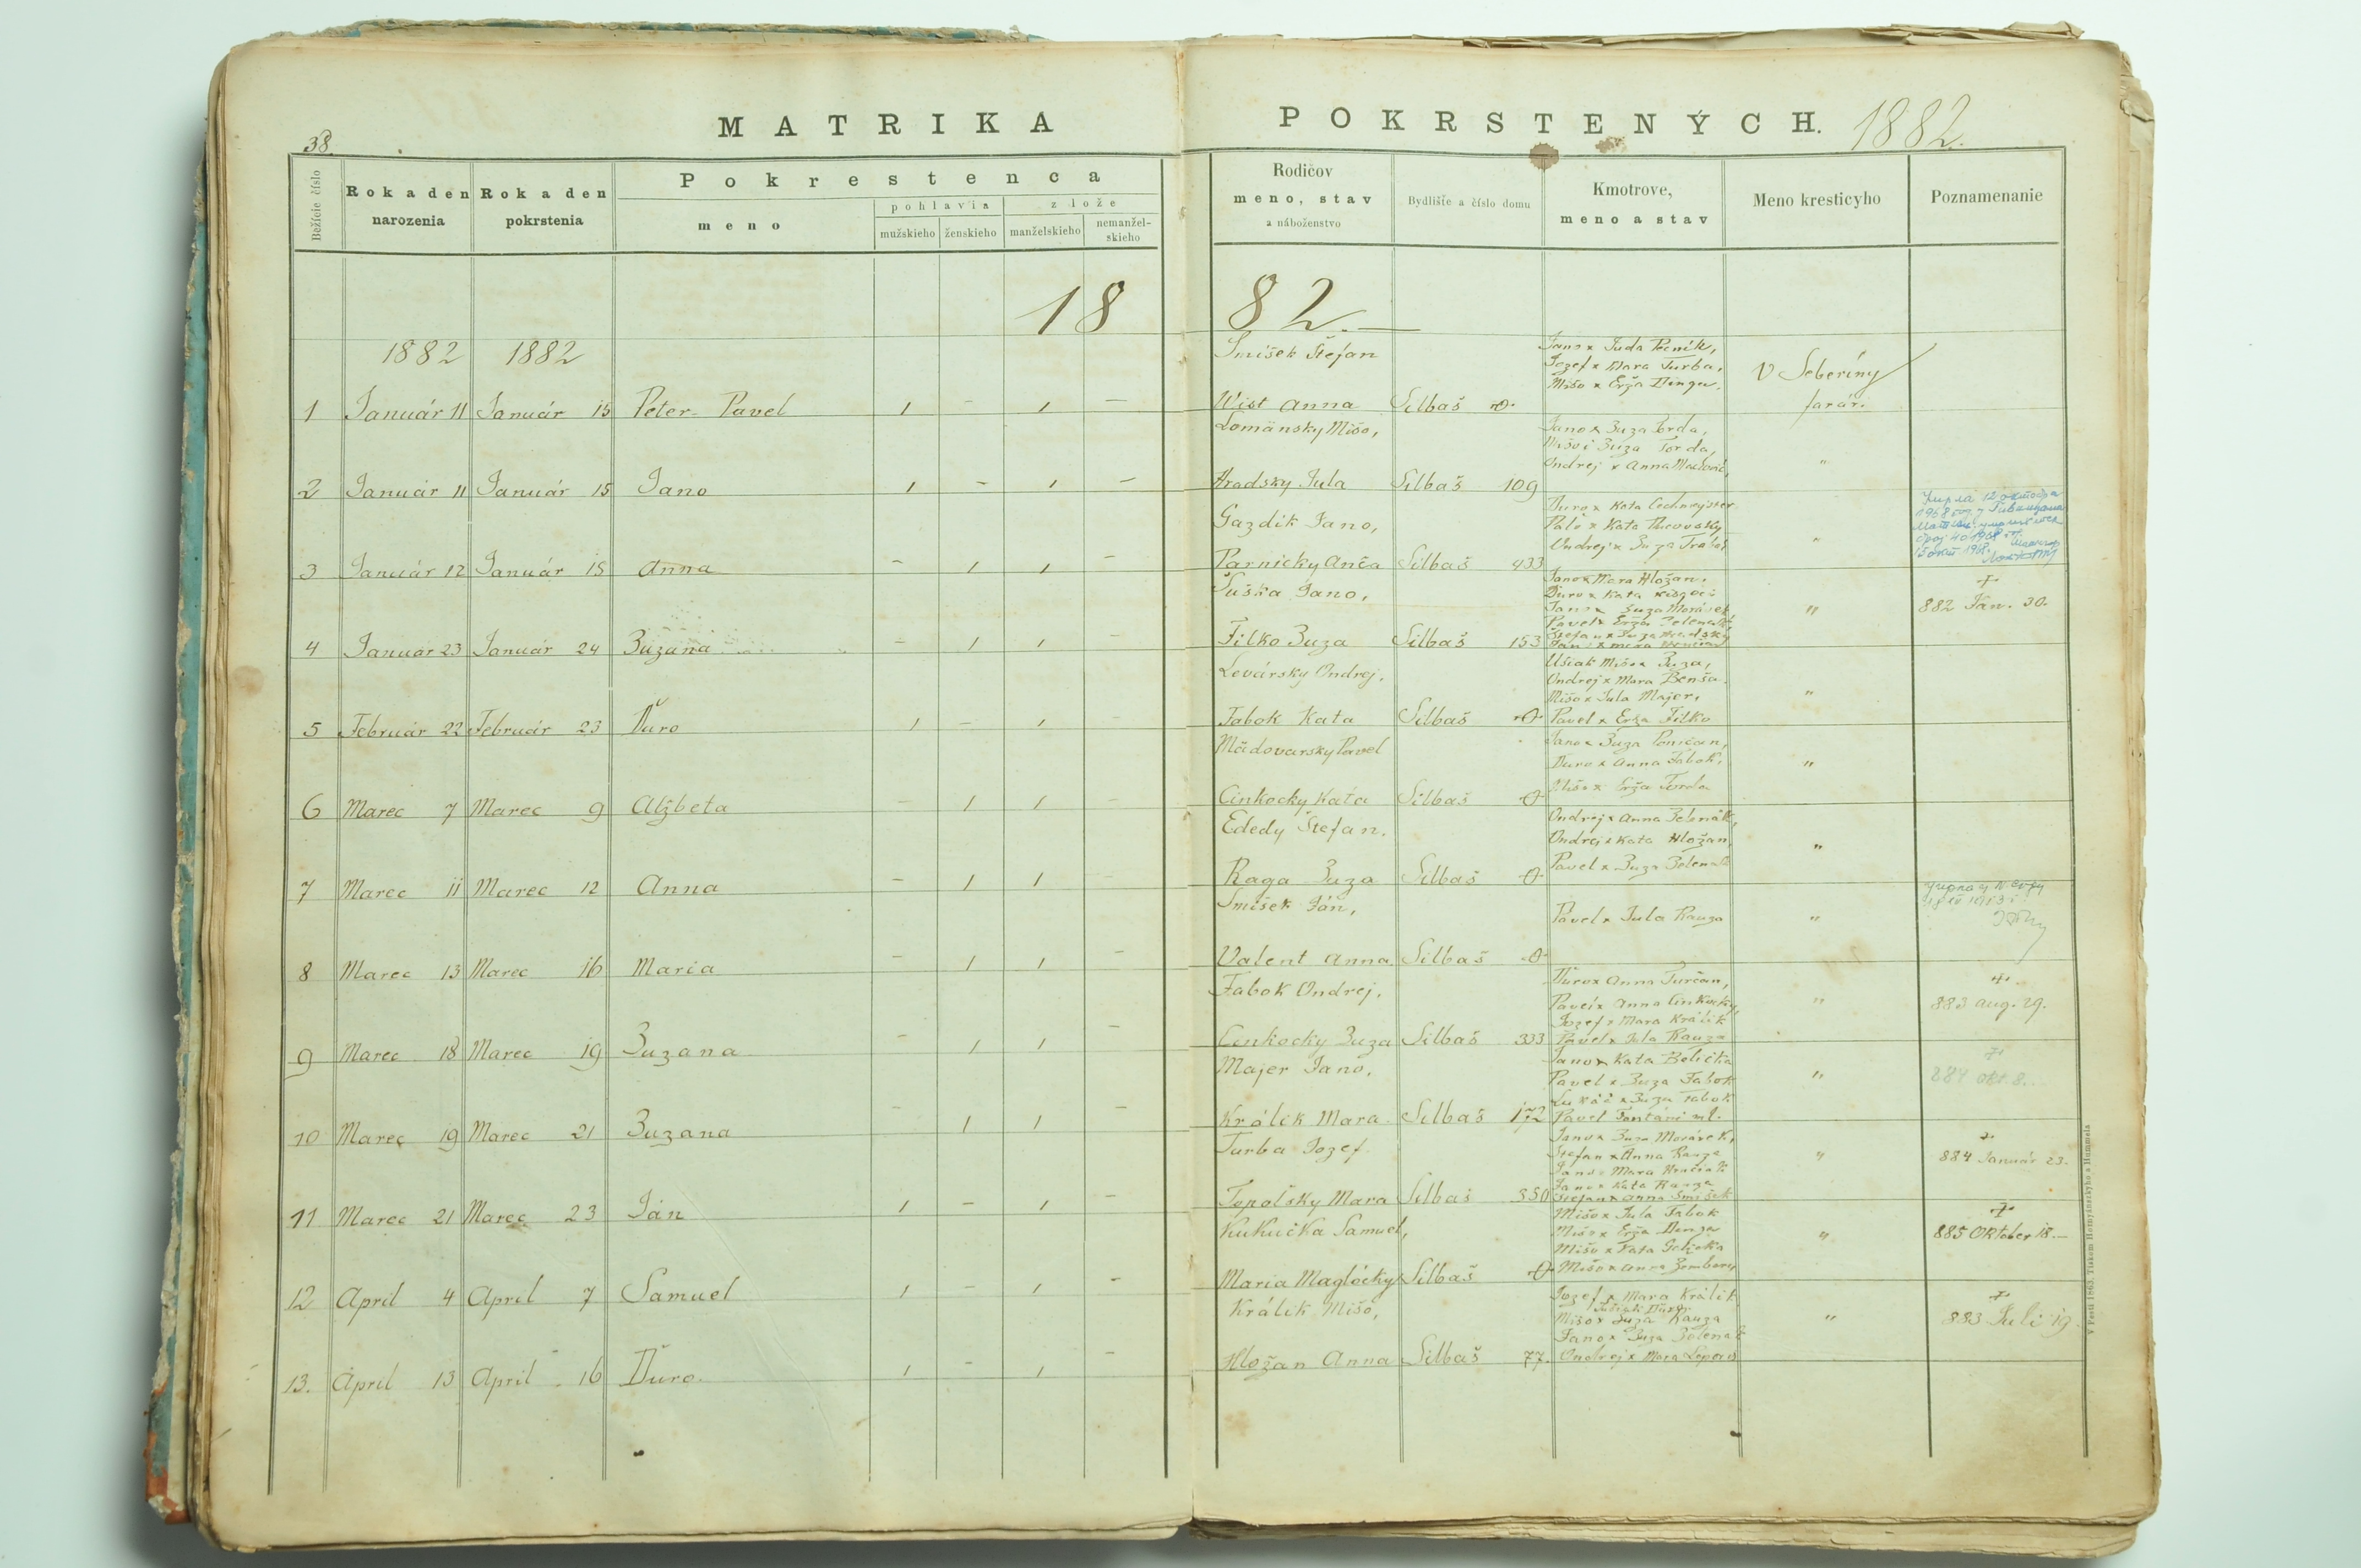 38.
MATRIKA POKRSTENÝCH. 1882.
Bežície číslo
Rok a deň narozenia
Rok a deň pokrstenia
Pokrestenca
meno
pohlavia
mužskieho ženskieho
z lože
manželskieho nemanželskieho
Rodičov
meno, stav
a náboženstvo
Bydlišťe a číslo domu
Kmotrove,
meno a stav
Meno kresticyho
Poznamenanie
1882.
1882 1882
Smišek Štefan
Jozef x Mara Turba,
Mišo x Erža Dinga.
V Seberíny
farár.
1 Január 11 Január 15 Peter Pavel 1 - 1 - Wist Anna Silbaš 0
Lomänsky Mišo,
Jano x Zuza Torda,
Mišo i Zuza Torda,
Ondrej x Anna
2 Január 11 Január 15 Jano 1 - 1 - Hradsky Jula Silbaš 109 "
Gazdik Jano,
Ďuro x Kata
Palo x Kata
Ondrej x Zuza
3 Január 12 Január 15 Anna - 1 1 - Parnicky Anča Silbaš 433 "
Šuška Jano,
Jano x Mara Hložan.
Ďuro x Kata
Jano x Zuza Morávek,
Pavel x Erža
4 Január 23 Január 24 Zuzana - 1 1 - Filko Zuza Silbaš 153 "
+
882 Jan. 30.
Levársky Ondrej.
Ušiak Mišo x Zuza,
Ondrej x Mara Benša.
Mišo x Jula Majer,
Pavel x Erža Filko
5 Február 22 Február 23 Ďuro 1 - 1 - Fabok Kata Silbaš 0 "
Mädovarsky Pavel
Jano x Zuza Poničan,
Ďuro x Anna Fabok,
Mišo x Erža Torda
6 Marec 7 Marec 9 Alžbeta - 1 1 - Cinkocky Kata Silbaš 0 "
Ededy Štefan.
Ondrej x Anna Zelenák,
Ondrej x Kata Hložan,
Pavel x Zuza Zelenák
7 Marec 11 Marec 12 Anna - 1 1 - Raga Zuza Silbaš 0 "
Smišek Ján,
Pavel x Jula Rauza
8 Marec 13 Marec 16 Maria - 1 1 - Valent Anna Silbaš 0 "
Fabok Ondrej.
Ďuro x Anna Turčan,
Pavel x Anna Cinkocky,
Jozef x Mara Králik
Pavel x Jula Rauza
9 Marec 18 Marec 19 Zuzana - 1 1 - Cenkocky Zuza Silbaš 333 "
+
883 Aug. 29.
Majer Jano,
Jano x Kata Belička
Pavel x Zuza Fabok
Lukáč x Zuza Fabok
Pavel Fontáni ml.
10 Marec 19 Marec 21 Zuzana - 1 1 - Králik Mara Silbaš 172 "
+
884 Okt. 8.
Turba Jozef
Jano x Zuza Morávek,
Štefan x Anna Rauza
Jano x Kata Rauza
Štefan x Anna Smišek
11 Marec 21 Marec 23 Ján 1 - 1 - Topoľsky Mara Silbaš 350 "
+
884 Január 23.
Kukučka Samuel,
Mišo x Jula Fabok
Mišo x Erža Dinga
Mišo x Kata
Mišo x Anna
12 April 4 April 7 Samuel 1 - 1 - Maria Maglócky Silbaš 0 "
+
885 Oktober 18.
Králik Mišo,
Jozef x Mara Králik
Mišo x Zuza Rauza
Jano x Zuza Zelenak
Ondrej x Mara
13. April 13 April 16 Ďuro. 1 - 1 - Hložan Anna Silbaš 77. "
+
883 Juli 19
V Pešti 1863. Tlačom Hornyánskyho a Hummela